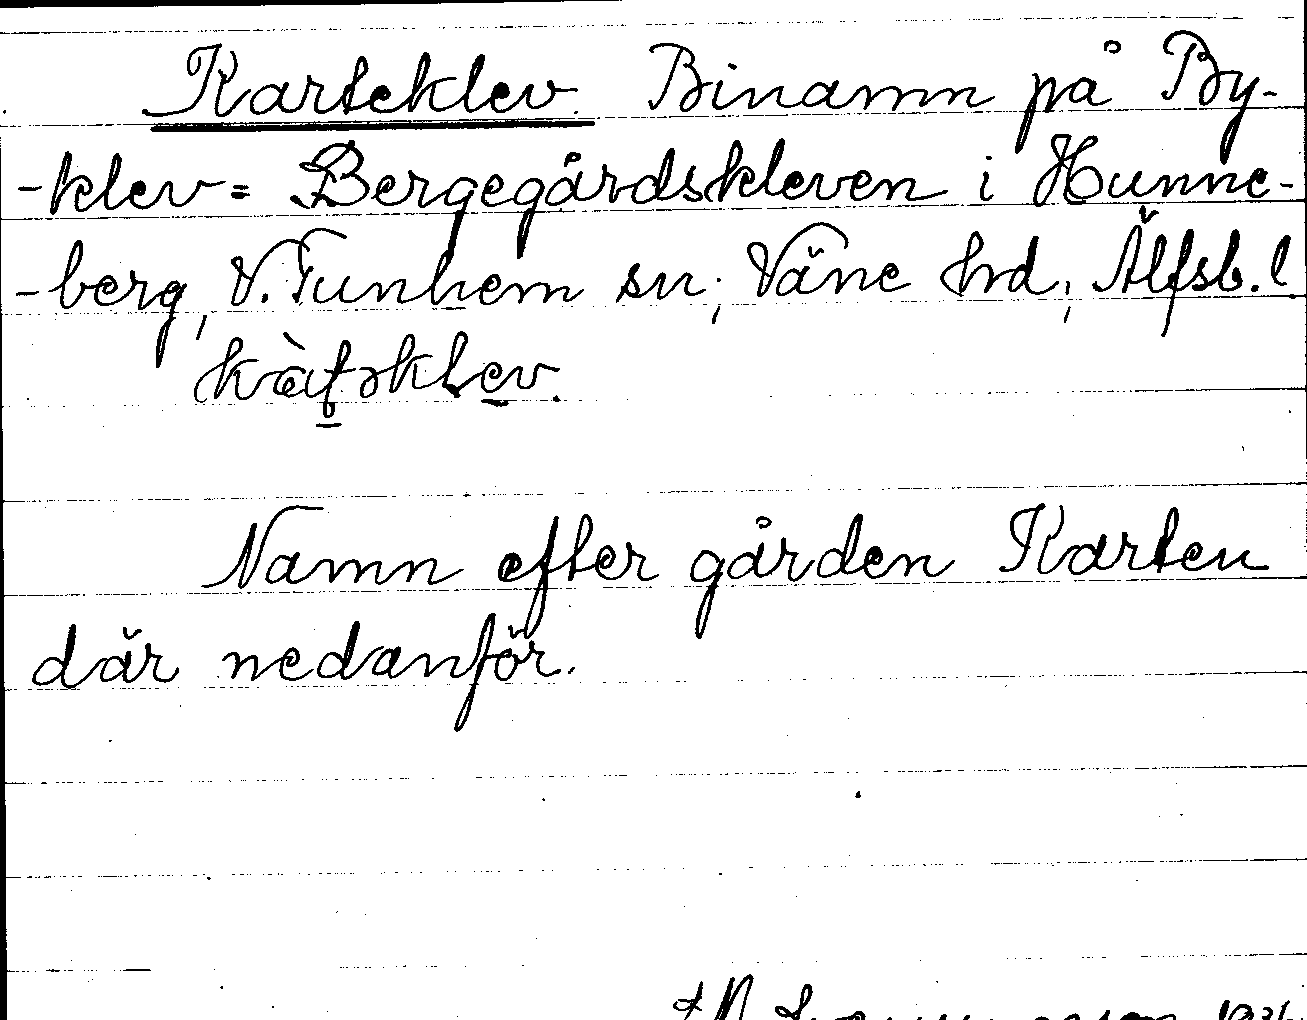 Karteklev. Binamn på By-
-klev = Bergegårdskleven i Hunne-
-berg, V. Tunhem sn; Väne hrd; Älfsb. l.
Namn efter gården Karten
där nedanför.